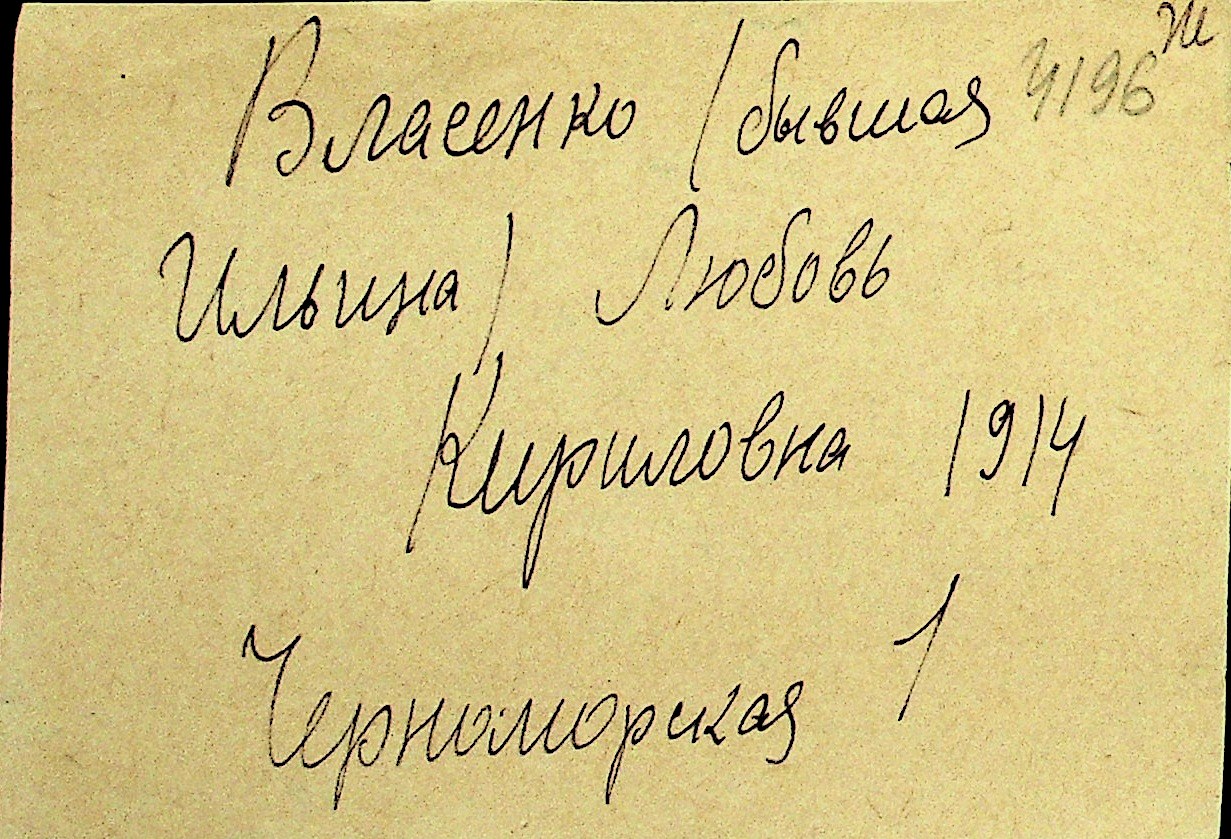 Власенко /бывшая 4196
Ильина/ Любовь
Кириловна 1914
Черноморская 1